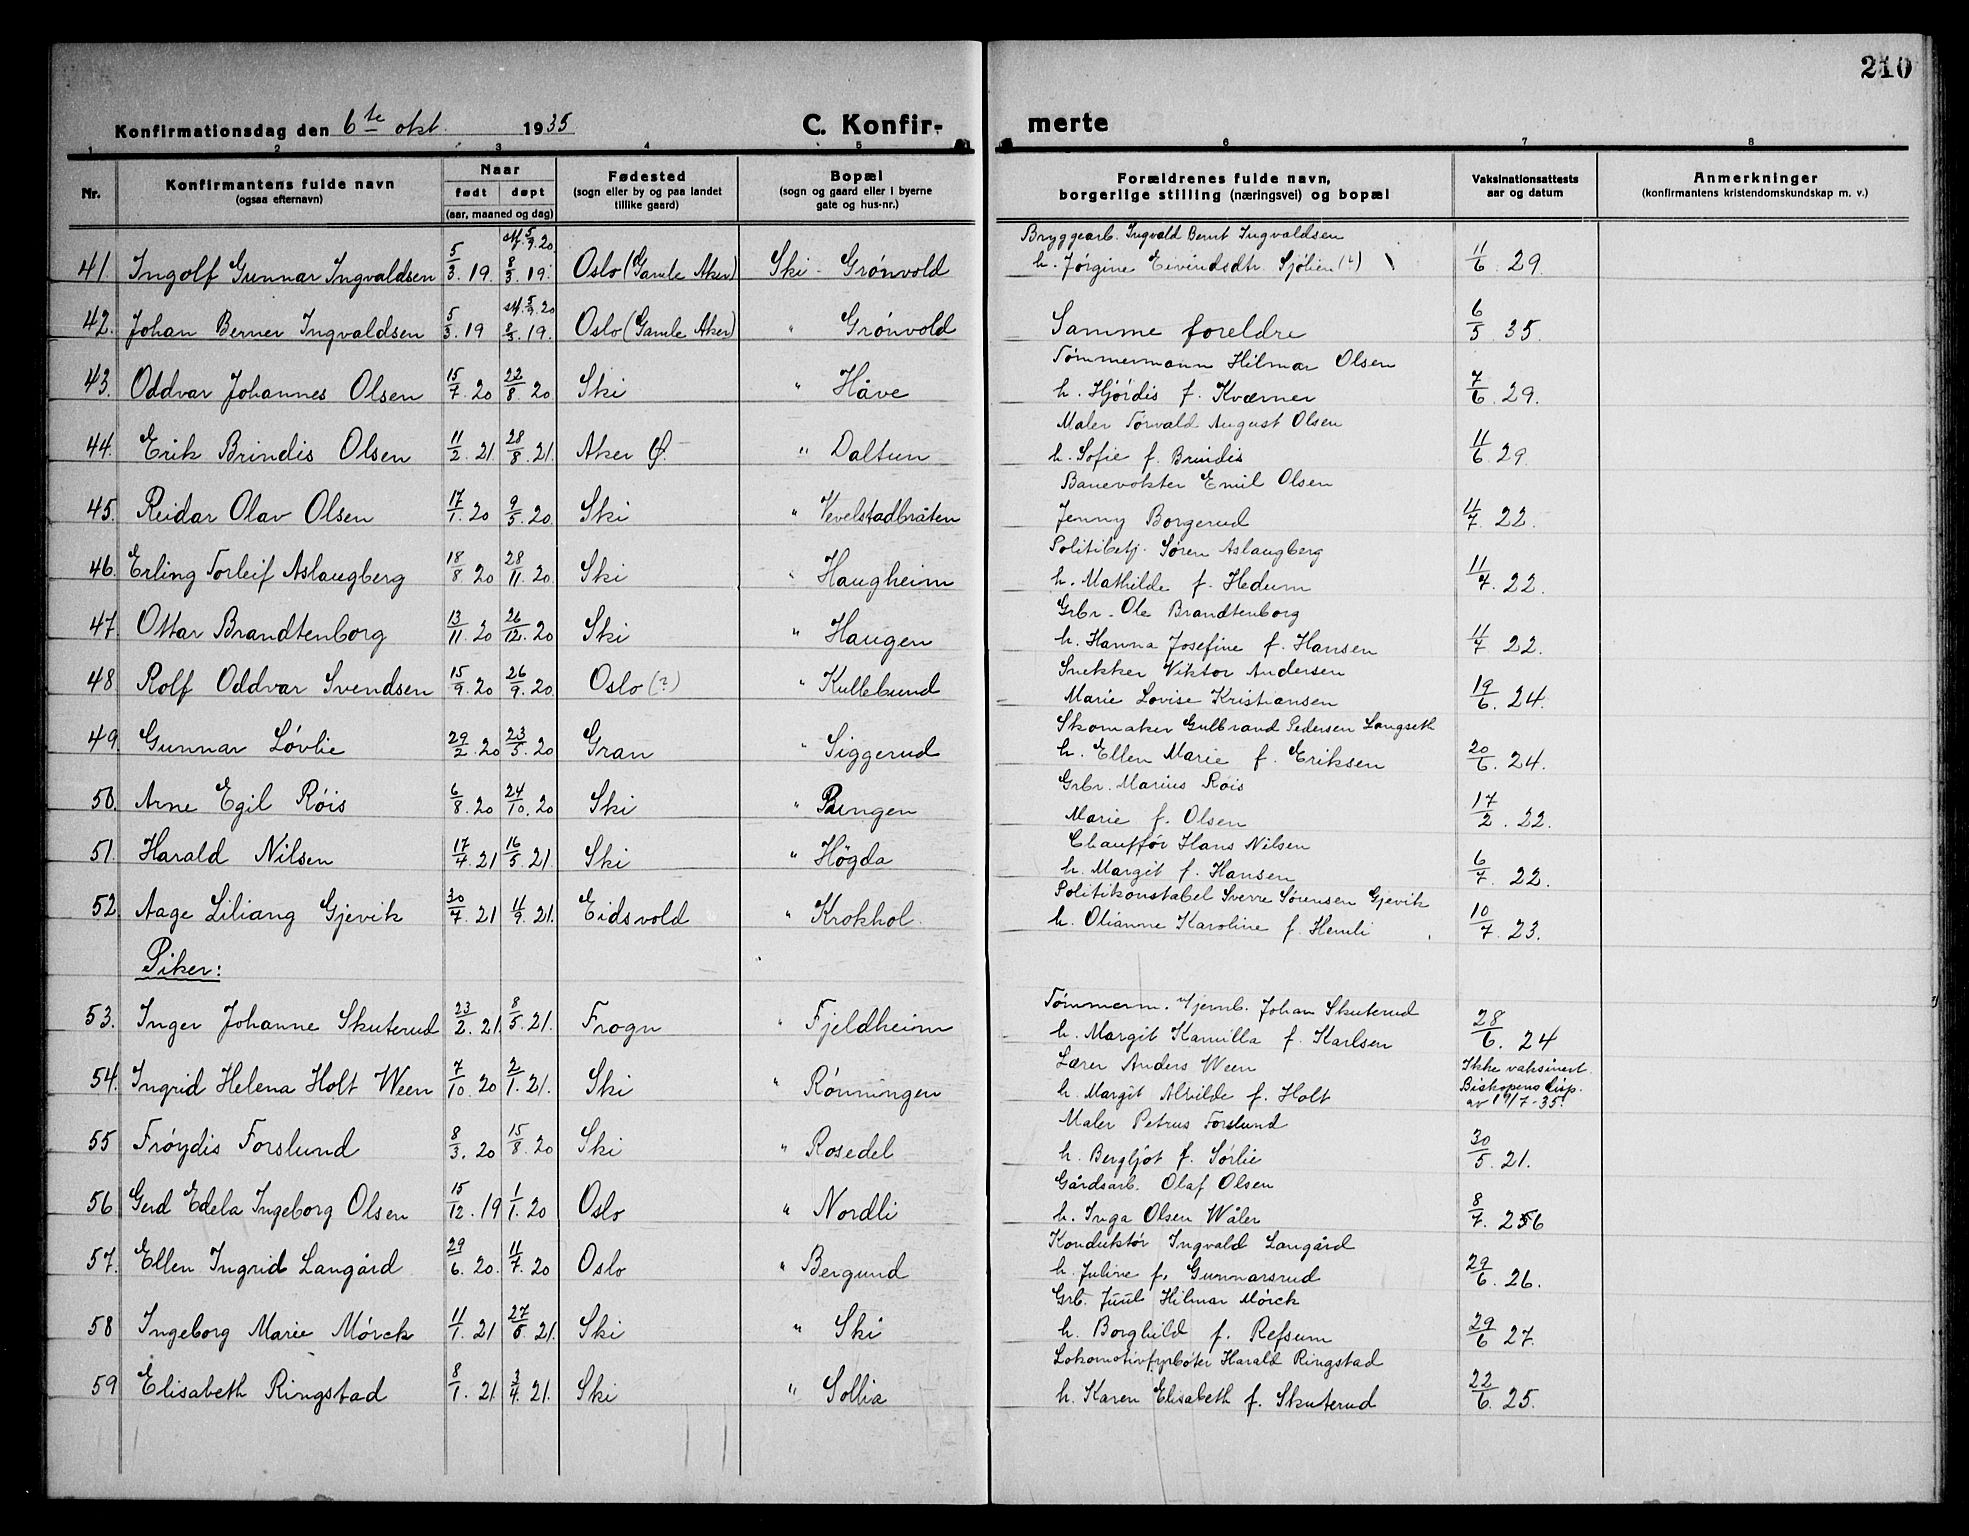 210
Konfirmationsdag den 6te okt. 1935 C. Konfir- merte
1 2 3 4 5 6 7 8
Nr. Konfirmantens fulde navn (ogsaa efternavn) Naar født døpt (aar, maaned og dag) Fødested (sogn eller by og paa landet tillike gaard) Bopæl (sogn og gaard eller i byerne gate og hus-nr.) Forældrenes fulde navn, borgerlige stilling (næringsvei) og bopæl Vaksinationsattests aar og datum Anmerkninger (konfirmantens kristendomskundskap m. v.)
stf. 5/9. 20 Bryggearb. Ingvald Bernt Ingvaldsen
41. Ingolf Gunnar Ingvaldsen 5/3. 19. 8/3. 19. Oslo (Gamle Aker) Ski - Grønvold h. Jørgine Eivindsdtr. Sjølien (?) 11/6. 29.
stf. 5/9. 20
42. Johan Berner Ingvaldsen 5/3. 19 8/3. 19. Oslo (Gamle Aker) " Grønvold Samme foreldre 6/5. 35.
Tømmermann Hilmar Olsen
43. Oddvar Johannes Olsen 15/7. 20 22/8. 20 Ski " Håve h. Hjørdis f. Kværner 7/6. 29.
Maler Torvald August Olsen
44. Erik Brindis Olsen 11/2. 21. 28/8. 21. Aker Ø. " Daltun h. Sofie f. Brindis 11/6 29.
Banevokter Emil Olsen
45. Reidar Olav Olsen 17/1. 20 9/5. 20 Ski " Vevelstadbråten Jenny Borgerud 11/7. 22.
Politibetj. Søren Aslaugberg
46. Erling Torleif Aslaugberg 18/8. 20 28/11. 20 Ski " Haugheim h. Mathilde f. Hedum 11/7. 22.
Grbr. Ole Brandtenborg
47 Ottar Brandtenborg 13/11. 20 26/12. 20 Ski " Haugen h. Hanna Josefine f. Hansen 11/7 22.
Snekker Viktor Andersen
48 Rolf Oddvar Svendsen 15/9. 20 26/9. 20 Oslo (?) " Kullebund Marie Lovise Kristiansen 19/6. 24.
Skomaker Gulbrand Pedersen Langseth
49 Gunnar Løvlie 29/2. 20 23/5. 20 Gran " Siggerud h. Ellen Marie f. Eriksen 20/6. 24.
Grbr. Marius Røis
50. Arne Egil Røis 6/8. 20 24/10. 20 Ski " Bingen Marie f. Olsen 17/2. 22.
Chauffør Hans Nilsen
51. Harald Nilsen 17/4. 21 16/5. 21. Ski " Högda h. Margit f. Hansen 6/7. 22.
Politikonstabel Sverre Sørensen Gjevik
52 Aage Liliang Gjevik 30/7. 21 11/9. 21. Eidsvold " Krokhol. h. Olianne Karoline f. Hemli 10/7. 23.
Piker:
Tømmerm. Hjemb. Johan Skuterud
53. Inger Johanne Skuterud 23/2. 21. 8/5. 21. Frogn " Fjeldheim h. Margit Kamilla f. Karlsen 28/6. 24
Lærer Anders Ween Ikke vaksinert.
54. Ingrid Helena Holt Ween 7/10. 20 2/1. 21. Ski " Rønningen h. Margit Alvilde f. Holt Biskopens disp.
av 17/7-35.
Maler Petrus Forslund
55 Frøydis Forslund 8/3. 20 15/8. 20 Ski " Rosedel h. Bergljot f. Sørlie 30/5. 21.
Gårdsarb. Olaf Olsen
56 Gerd Edela Ingeborg Olsen 15/12. 19 1/1. 20 Oslo " Nordli h. Inga Olsen Wåler 8/7. 26
Konduktør Ingvald Langård
57. Ellen Ingrid Langård 29/6. 20. 11/7. 20 Oslo " Bergund h. Juline f. Gunnarsrud 29/6. 26.
Grb. Juul Hilmar Mørck
58 Ingeborg Marie Mørck 11/1. 21 27/5. 21. Ski " Ski h. Borghild f. Refsum 29/6 27.
Lokomotivfyrbøter Harald Ringstad
59 Elisabeth Ringstad 8/1. 21 3/4. 21. Ski " Sollia h. Karen Elisabeth f. Skuterud 22/6. 25.